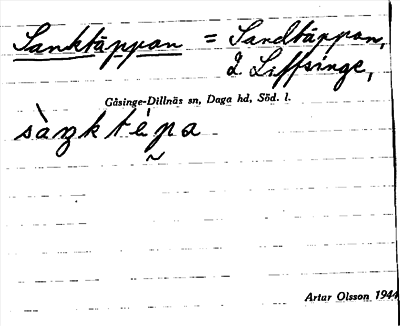 Sanktäppan = Sandtäppan,
2 Liffsinge,
Gåsinge-Dillnäs sn, Daga hd, Söd. l.
sàŋktépa
Artur Olsson 1944